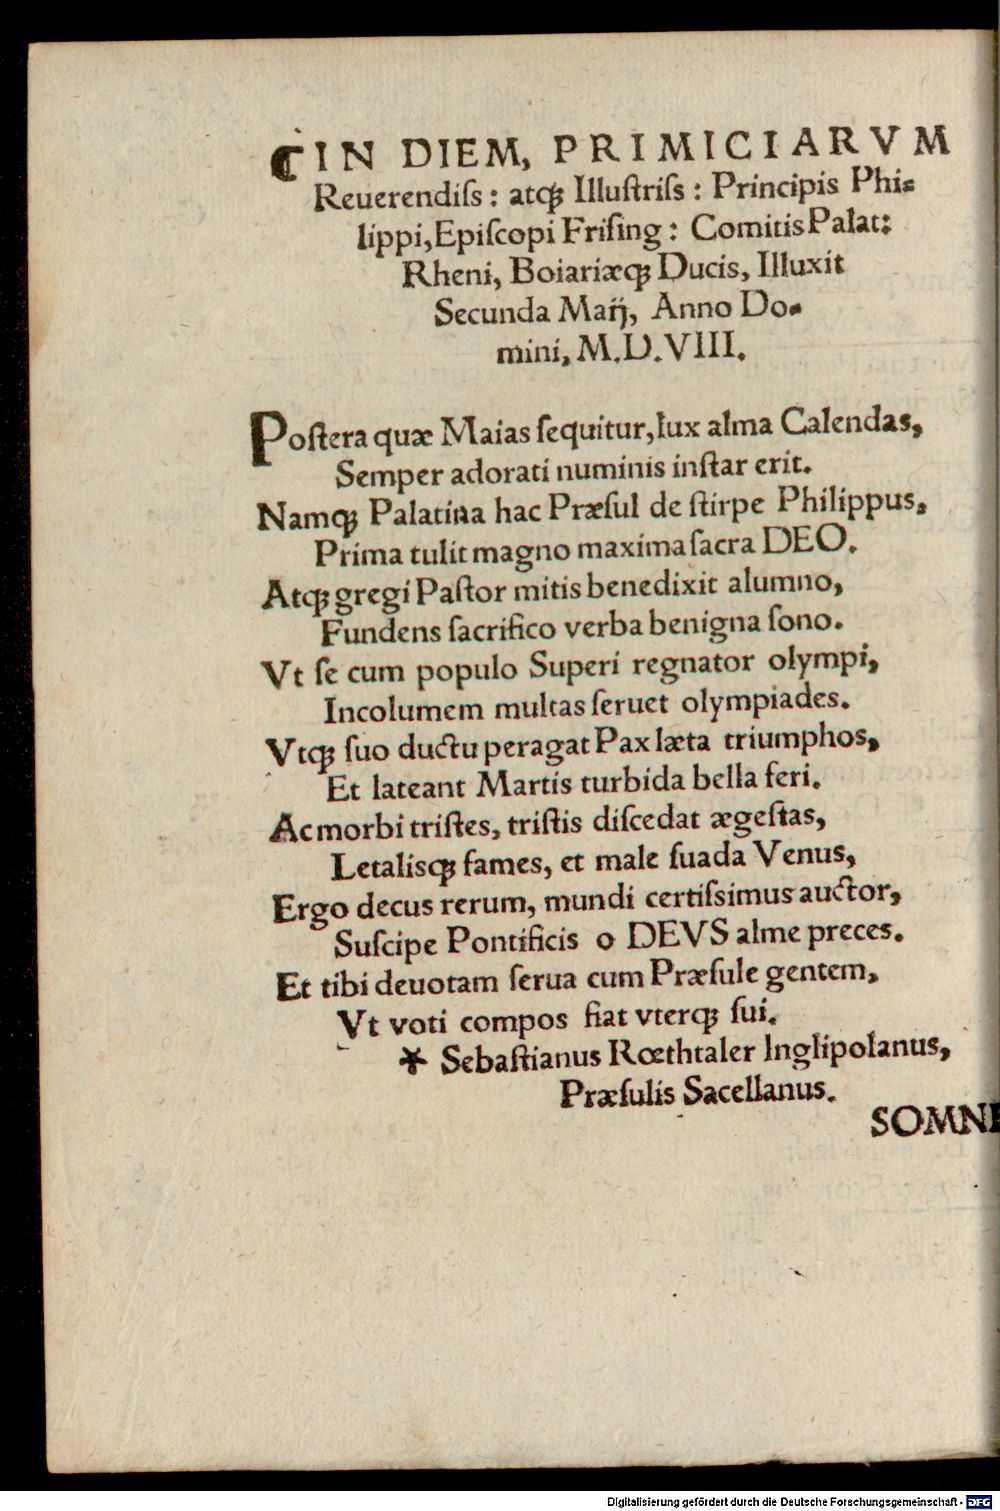 ¶ IN DIEM, PRIMICIARVM
Reuerendiſs: atqꝫ Illuſtriſs: Principis Phi⸗
lippi, Epiſcopi Friſing: Comitis Palat:
Rheni, Boiariæqꝫ Ducis, Illuxit
Secunda Maij, Anno Do⸗
mini, M.D.VIII.
Poſtera quæ Maias ſequitur, lux alma Calendas,
Semper adorati numinis inſtar erit.
Namqꝫ Palatina hac Præſul de ſtirpe Philippus,
Prima tulit magno maxima ſacra DEO.
Atqꝫ gregi Paſtor mitis benedixit alumno,
Fundens ſacrifico verba benigna ſono.
Vt ſe cum populo Superi regnator olympi,
Incolumem multas ſeruet olympiades.
Vtqꝫ ſuo ductu peragat Pax læta triumphos,
Et lateant Martis turbida bella feri.
Ac morbi triſtes, triſtis diſcedat ægeſtas,
Letalisqꝫ fames, et male ſuada Venus,
Ergo decus rerum, mundi certiſsimus auctor,
Suſcipe Pontificis o DEVS alme preces.
Et tibi deuotam ſerua cum Præſule gentem,
Vt voti compos fiat vterqꝫ ſui.
* Sebaſtianus Rœthtaler Inglipolanus,
Præſulis Sacellanus.
SOMNI
Digitalisierung gefördert durch die Deutsche Forschungsgemeinschaft - DFG